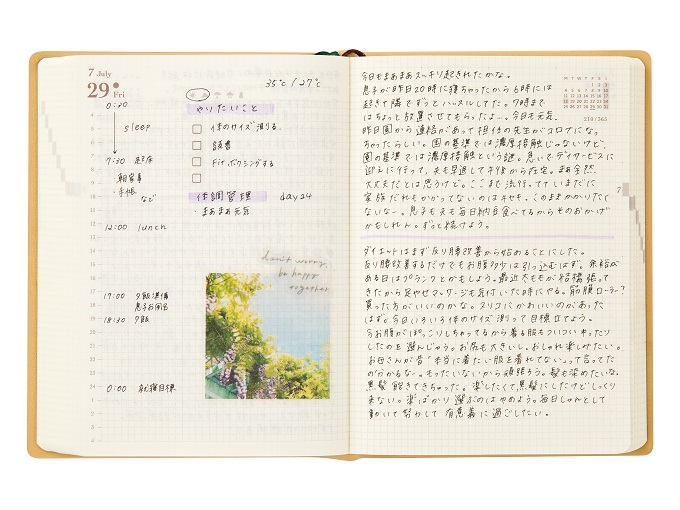 7 July
29
Fri
35℃ / 27℃
0:20
sleep
7:30 起床
・朝家事
・手帳
など
12:00 lunch
17:00 夕飯準備
息子お風呂
18:30 夕飯
0:00 就寝目標
やりたいこと
体のサイズ測る
読書
Fitボクシングする
体調管理 day24
・まあまあ元気
don't worry,
be happy
together
今日もまあまあスッキリ起きれたかな。
息子が昨日20時に寝ちゃったから6時には
起きて隣でずっとハッスルしてた。7時まで
はちょっと放置させてもらったよー。今日も元気。
昨日園から連絡があって担任の先生がコロナにな
っちゃったらしい。園の基準では濃厚接触じゃないけど、
園の基準では濃厚接触という謎。急いでデイサービスに
迎えに行って、夫も早退して午後から在宅。まあ全然
大丈夫だとは思うけど。ここまで流行ってていまだに
家族だれもかかってないのはキセキ。このままかかりたく
ないなー。息子も夫も毎日納豆食べてるからそのおかげ
かもしれん。ずっと続けよう。
ダイエットはまず反り腰改善から始めることにした。
反り腰改善するだけでもお腹多少は引っ込むはず。余裕が
ある日はプランクとかもしよう。最近太ももが結構張って
きたから足やせマッサージも気付いた時にやる。筋膜ローラー?
買った方がいいのかな。スリコにかわいいのがあった
はず。今日いろいろ体のサイズ測って目標立てよう。
今お腹がぽっこりしちゃってるから着る服もついついゆったり
したのを選んじゃう。お尻も大きいし。おしゃれ楽しみたい。
お母さんが昔"本当に着たい服を着れてない"って言ってた
のが分かるなー。もったいないから頑張ろう。髪も染めたいな。
黒髪飽きてきちゃった。楽したくて黒髪にしたけどしっくり
来ない。楽ばかり選ぶのはやめよう。毎日しゃんとして
動いて努力して有意義に過ごしたい。
M T W T F S S
210/365
7